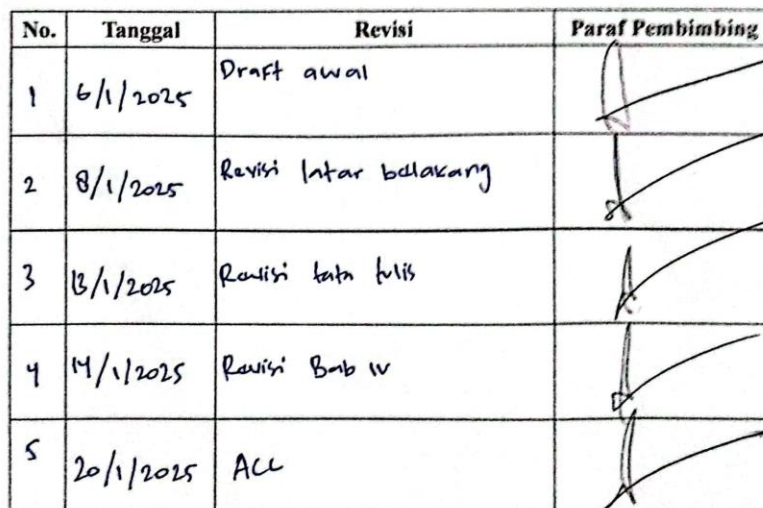 No. Tanggal Revisi Paraf Pembimbing
1 6/1/2025 Draft awal
2 8/1/2025 Revisi latar belakang
3 13/1/2025 Revisi tata tulis
4 14/1/2025 Revisi Bab IV
5 20/1/2025 ACC